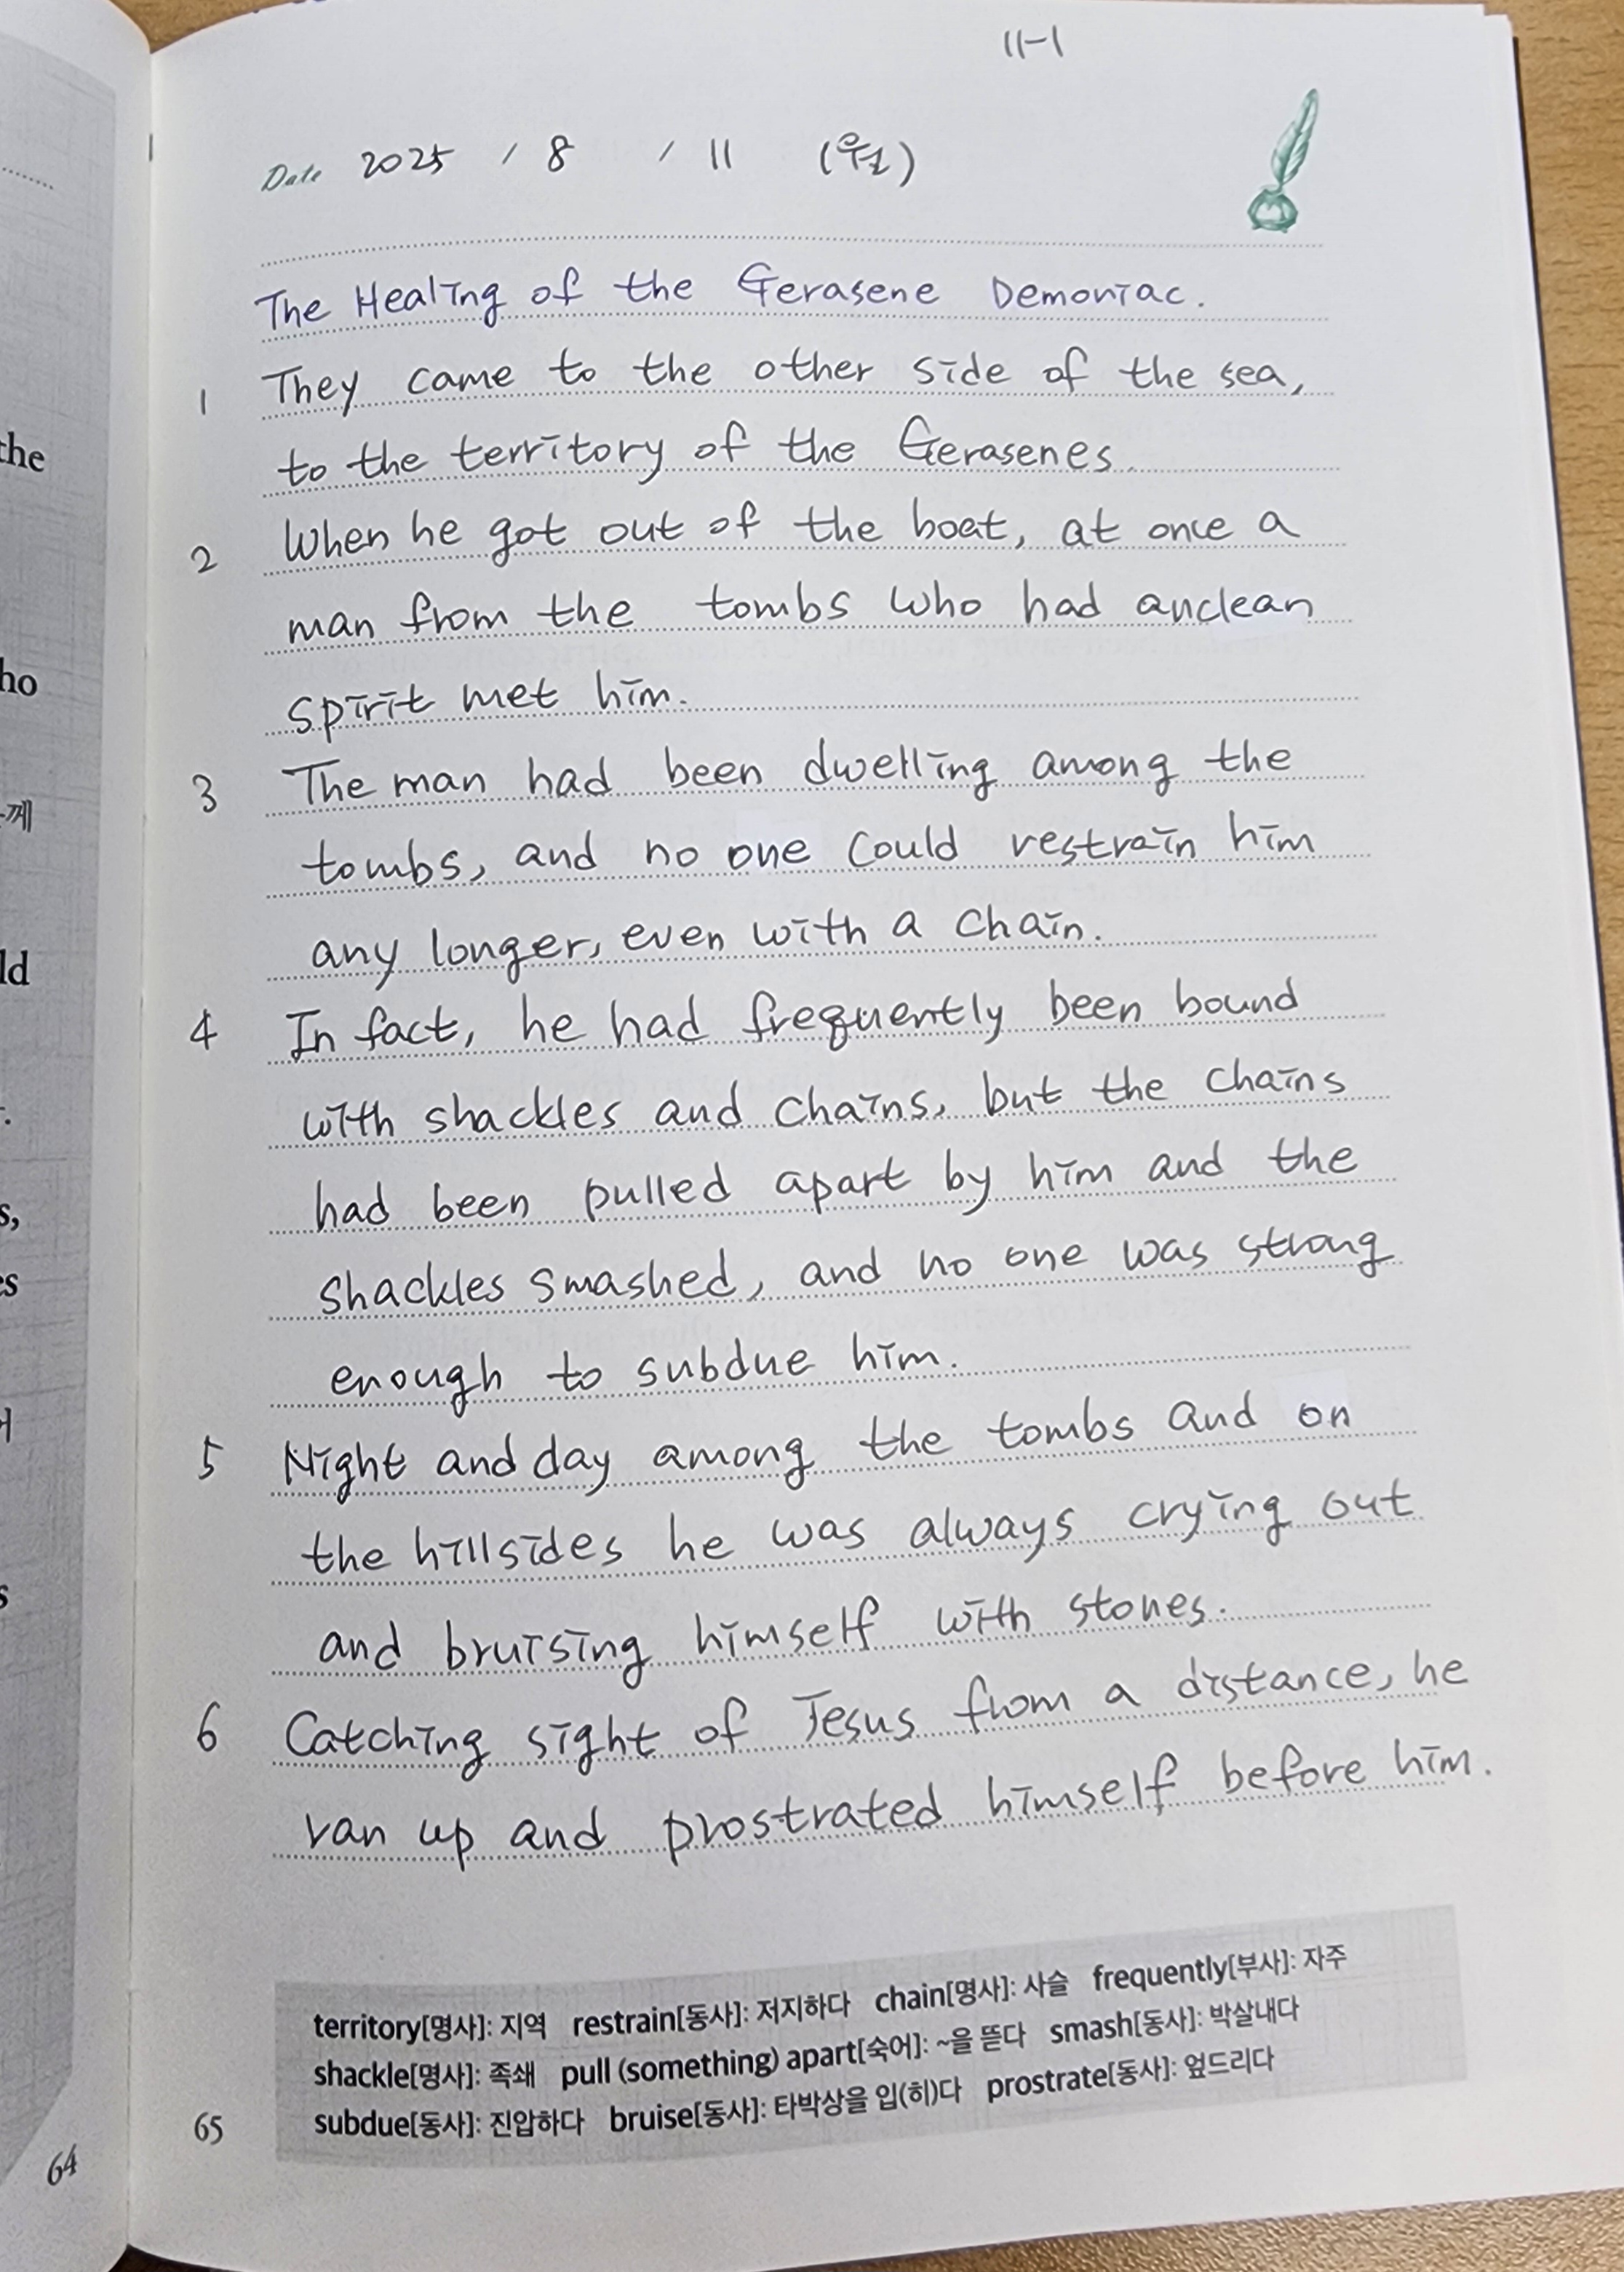 the
ho
께
ld
s,
es
11-1
Date 2025 / 8 / 11 (월)
The Healing of the Gerasene Demoniac.
1 They came to the other side of the sea,
to the territory of the Gerasenes.
2 When he got out of the boat, at once a
man from the tombs who had anclean
spirit met him.
3 The man had been dwelling among the
tombs, and no one could restrain him
any longer, even with a chain.
4 In fact, he had frequently been bound
with shackles and chains, but the chains
had been pulled apart by him and the
shackles smashed, and no one was strong
enough to subdue him.
5 Night and day among the tombs and on
the hillsides he was always crying out
and bruising himself with stones.
6 Catching sight of Jesus from a distance, he
ran up and prostrated himself before him.
territory[명사]: 지역 restrain[동사]: 저지하다 chain[명사]: 사슬 frequently[부사]: 자주
shackle[명사]: 족쇄 pull (something) apart[숙어]: ~을 뜯다 smash[동사]: 박살내다
subdue[동사]: 진압하다 bruise[동사]: 타박상을 입(히)다 prostrate[동사]: 엎드리다
65
64